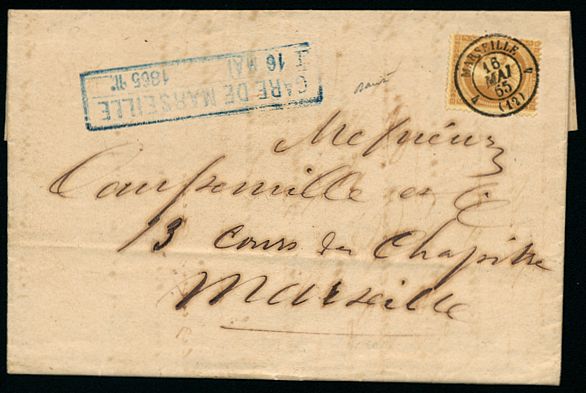 GARE DE MARSEILLE
16 MAI 1865
MARSEILLE
16
MAI
65
(12)
Messieurs
et Cie
13 Cours du Chapitre
Marseille